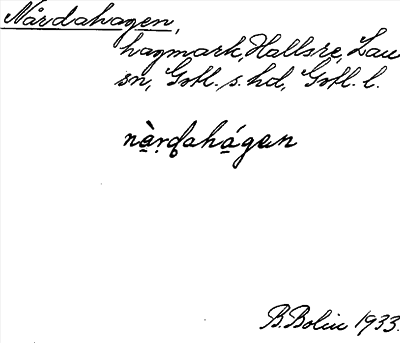 Nårdahagen,
hagmark, Hallsre, Lau
sn, Gotl. s. hd, Gotl. l.
nàṛdahágen
B. Bolin 1933.